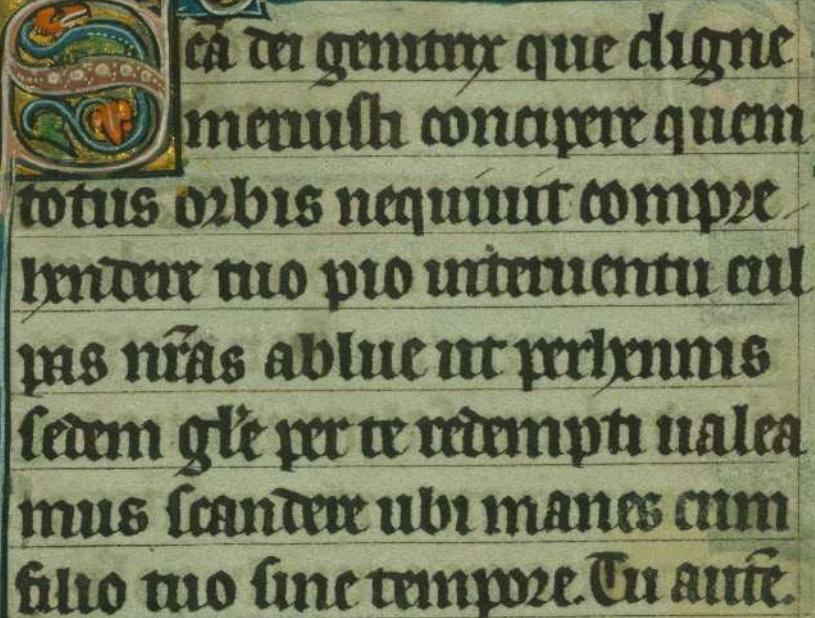 Sc̄a dei genitrix que digne
meruisti concipere quem
totus orbis nequiuit compre
hendere tuo pio interuentu cul
pas nr̄as ablue ut perhennis
sedem gl̄e per te redempti ualea
mus scandere ubi manes cum
filio tuo sine tempore. Tu autē.